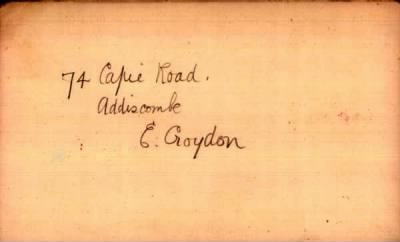 74 Capri Road.
Addiscombe
E. Croydon